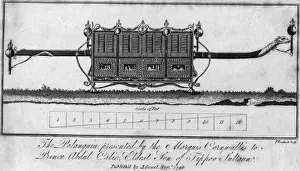 Scale of Feet
1 2 3 4 5 6 7 8 9 10 11 12
The Palanquin presented by the Marquis Cornwallis to
Prince Abdul Calic, Eldest Son of Tippoo Sultaun.
Published by J. Sewell